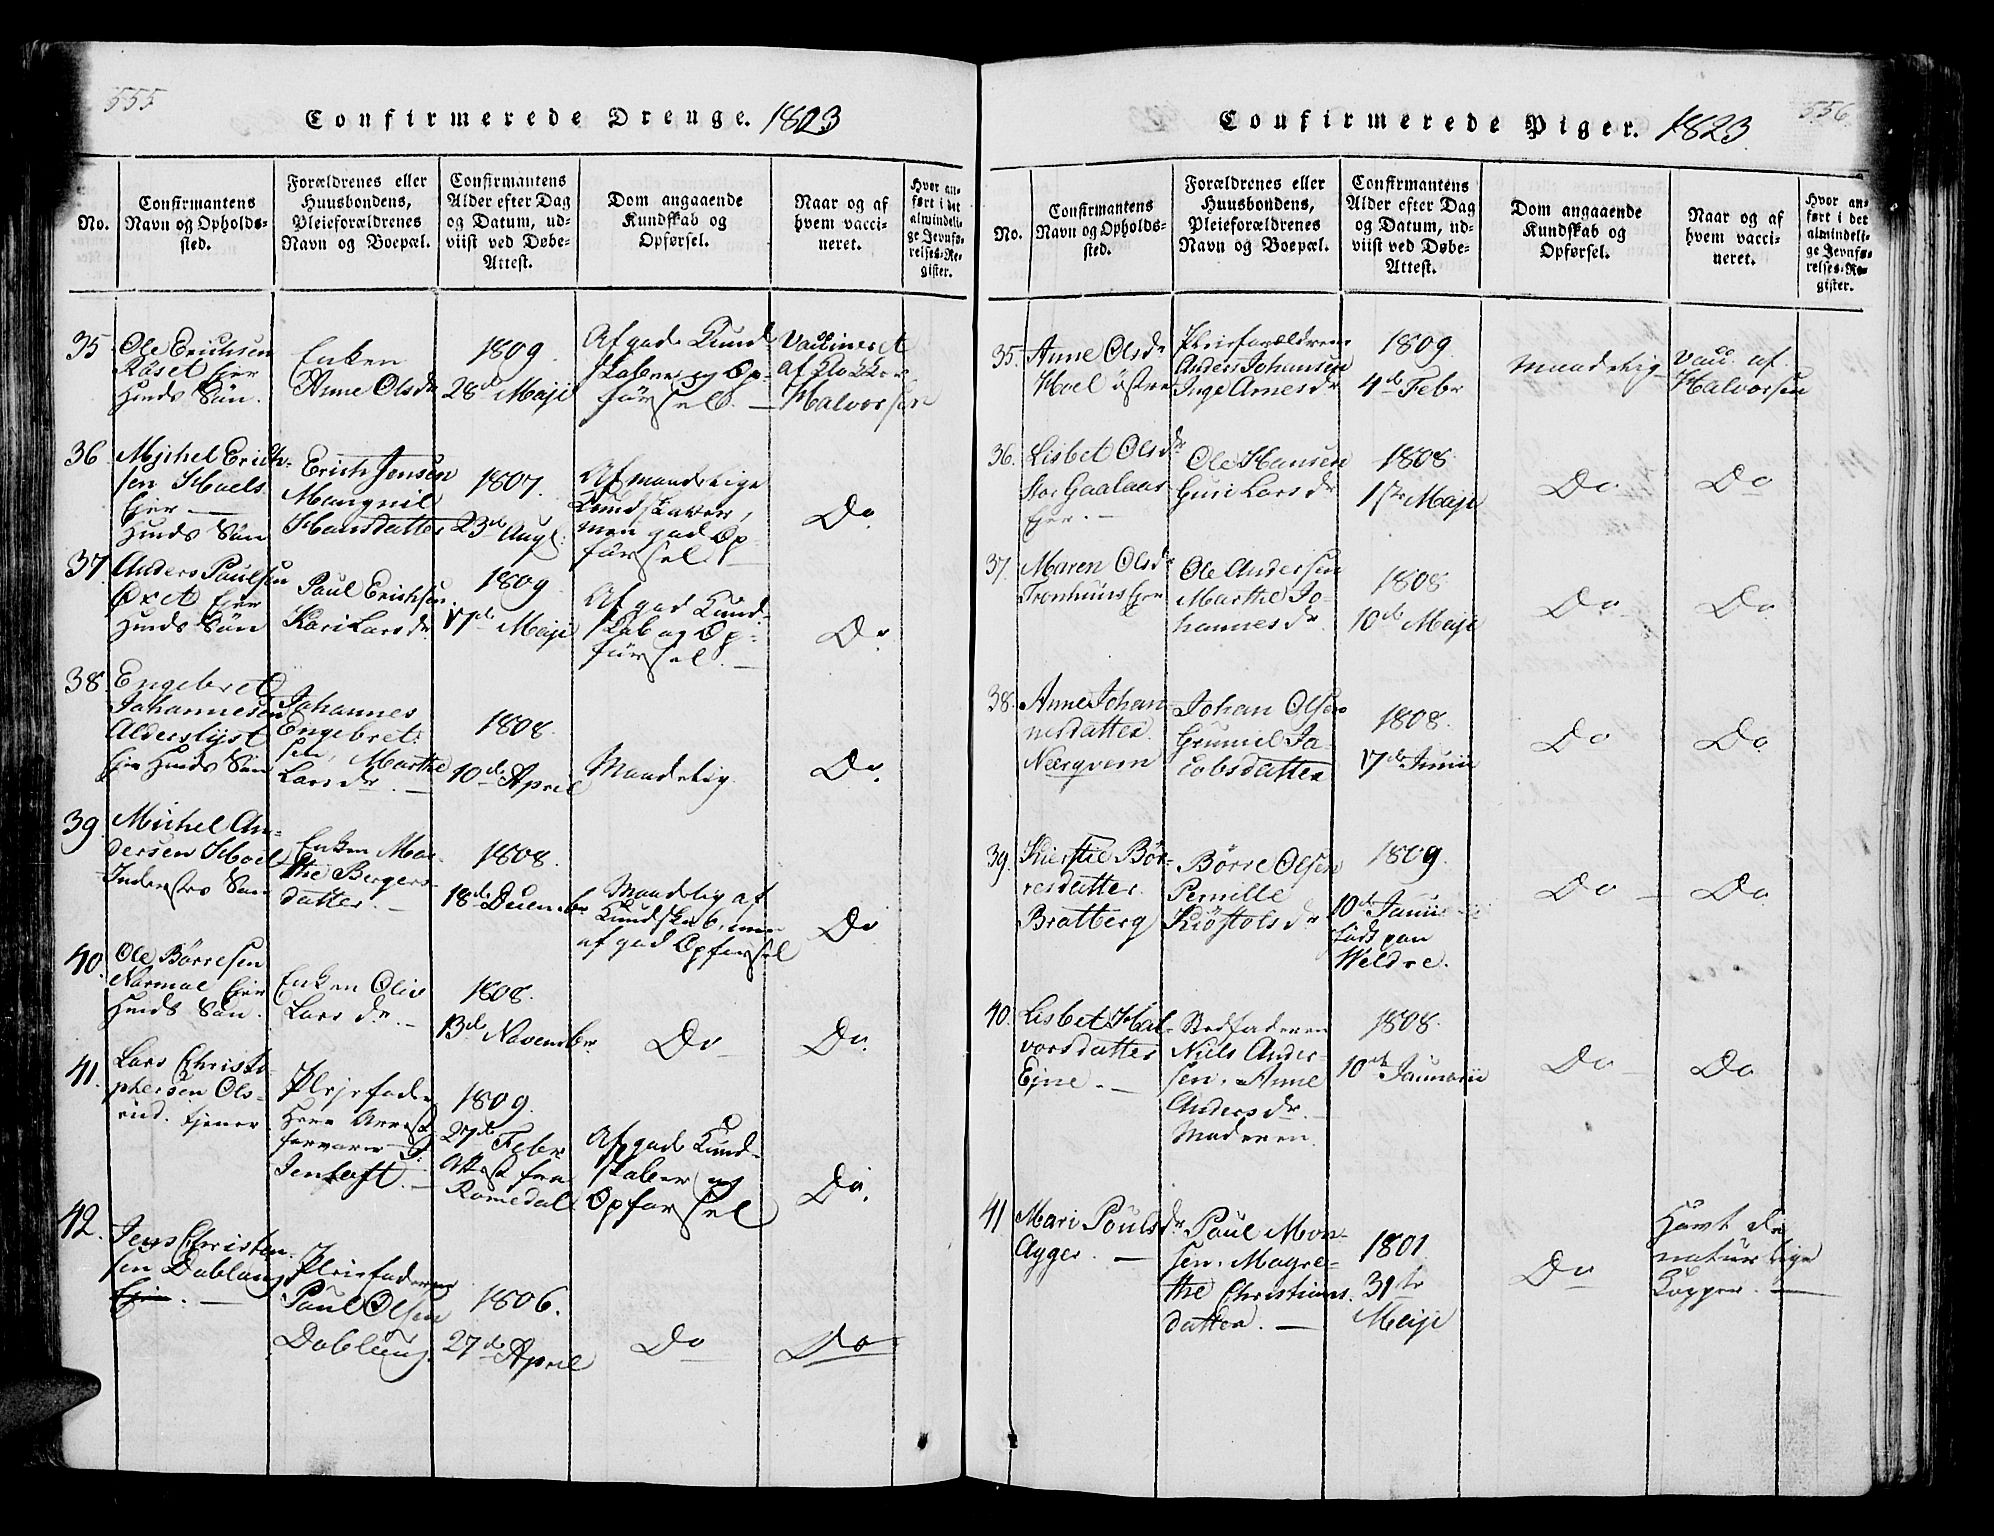 555
Confirmerede Drenge. 1823
No.
Confirmantens
Navn og Opholds-
sted.
Forældrenes eller
Huusbondens,
Pleieforældrenes
Navn og Boepæl.
Confirmantens
Alder efter Dag
og Datum, ud-
viist ved Døbe-
Attest.
Dom angaaende
Kundskab og
Opførsel.
Naar og af
hvem vacci-
neret.
Hvor an-
ført i det
almindeli-
ge Jevnfø-
relses-Re-
gister.
35
Ole Erichsen
Røset Eier
Huuds Søn.
Enken
Anne Olsdr
1809.
28de Maji
Af gode Kund
skaber og Op-
førsel. —
Vaccineret
af Klokker
Halvorsen
36
Michel Erich-
sen Hoels
Eier —
Huuds Søn
Erich Jensen
Mangnil
Hansdatter
1807.
23de Augs:
Af maadelige
Kundskaber,
men god Op-
førsel. —
Do.
37.
Anders Paulsen
Eier
Huuds Søn
Paul Erichsen.
Kari Larsdr.
1809
17de Maji
Af god Kund-
skab og Op-
førsel. —
Do.
38.
Engebret
Johannesen
Alderslyst
Eier Huuds Søn
Johannes
Engebret-
sen, Marthe
Larsdr. —
1808.
10de April
Maadelig.
Do.
39.
Michel An-
dersen Hoel
Søn
Enken Mar-
the Bergers-
datter. —
1808.
18de Decembr
Maadelig af
Kundskab, men
af god Opførsel
Do
40.
Ole Børresen
Normal Eier
Huuds Søn.
Enken Olive
Larsdr. —
1808.
13de Novembr.
Do
Do.
41.
Lars Christo-
phersen Ols-
rud. tjener
Plejefader
Herr Arrest
forvarer
Jentoft. —
1809.
27de Febr
Attest fra
Romedal
Af gode Kund-
skaber og
Opførsel
Do.
42.
Jens Christen-
sen Doblaug
Eje. —
Pleiefaderen
Paul Olsen
Doblaug.
1806.
27de April
Do
Do
556.
Confirmerede Piger. 1823.
No.
Confirmantens
Navn og Opholds-
sted.
Forældrenes eller
Huusbondens,
Pleieforældrenes
Navn og Boepæl.
Confirmantens
Alder efter Dag
og Datum, ud-
viist ved Døbe-
Attest.
Dom angaaende
Kundskab og
Opførsel.
Naar og af
hvem vacci-
neret.
Hvor an-
ført i det
almindeli-
ge Jevnfø-
relses-Re-
gister.
35.
Anne Olsdr
Hoel østre
Pleieforældrene
Anders Johansen
Inge Arnesdr
1809.
4de Febr
Maadelig
Vacc. af
Halvorsen
36.
Lisbet Olsdr
Stor Gaalaas
Eier. —
Ole Hansen
Guri Larsdr
1808
1ste Maji
Do
Do
37.
Maren Olsdr
Tronhuus Eie
Ole Andersen
Marthe Jo-
hannesdr.
1808
10de Maji
Do
Do
38.
Anne Johan-
nesdatter.
Nærqvern
Johan Olsen
Gunnel Ja-
cobsdatter
1808.
17de Junii
Do
Do
39.
Kierstie Bør-
resdatter.
Bratberg
Børre Olsen
Pernille
Kiøstolsdr
1809.
10de Junii
født paa
Weldre.
Do
Do
40.
Lisbet Hal-
vorsdatter
Ejne. —
Stedfaderen
Niels Ander-
sen. Anne
Andersdr. —
Moderen.
1808.
10de Januarii
Do
Do
41
Mari Poulsdr
Agger. —
Poul Mon-
sen. Magre-
the Christians.
datter. —
1801.
31te
Maji
Do
Havt de
naturlige
Kopper. —